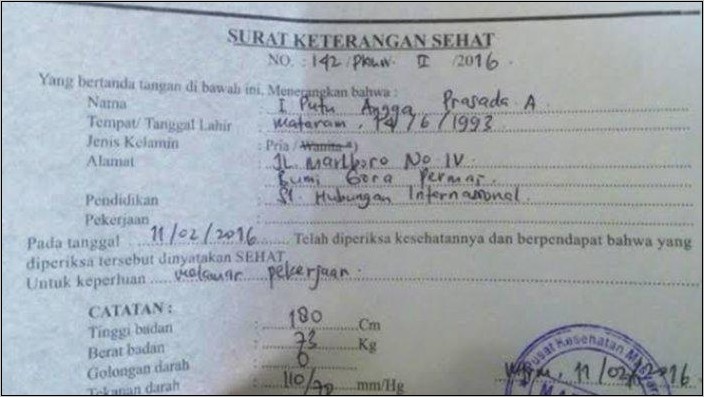 SURAT KETERANGAN SEHAT
NO. : 142 /PKM. II /2016.
Yang bertanda tangan di bawah ini, Menerangkan bahwa :
Nama : I Putu Angga Prasada A.
Tempat/ Tanggal Lahir : Mataram, 14/6/1993
Jenis Kelamin : Pria / Wanita *)
Alamat : Jl. Marlboro No IV.
Bumi Gora Permai.
Pendidikan : S1. Hubungan Internasional.
Pekerjaan :
Pada tanggal 11/02/2016 Telah diperiksa kesehatannya dan berpendapat bahwa yang
diperiksa tersebut dinyatakan SEHAT.
Untuk keperluan melamar pekerjaan.
CATATAN :
Tinggi badan : 180 Cm
Berat badan : 73 Kg
Golongan darah : O
Tekanan darah : 110/70 mm/Hg
Pusat Kesehatan Masyar
11/02/2016